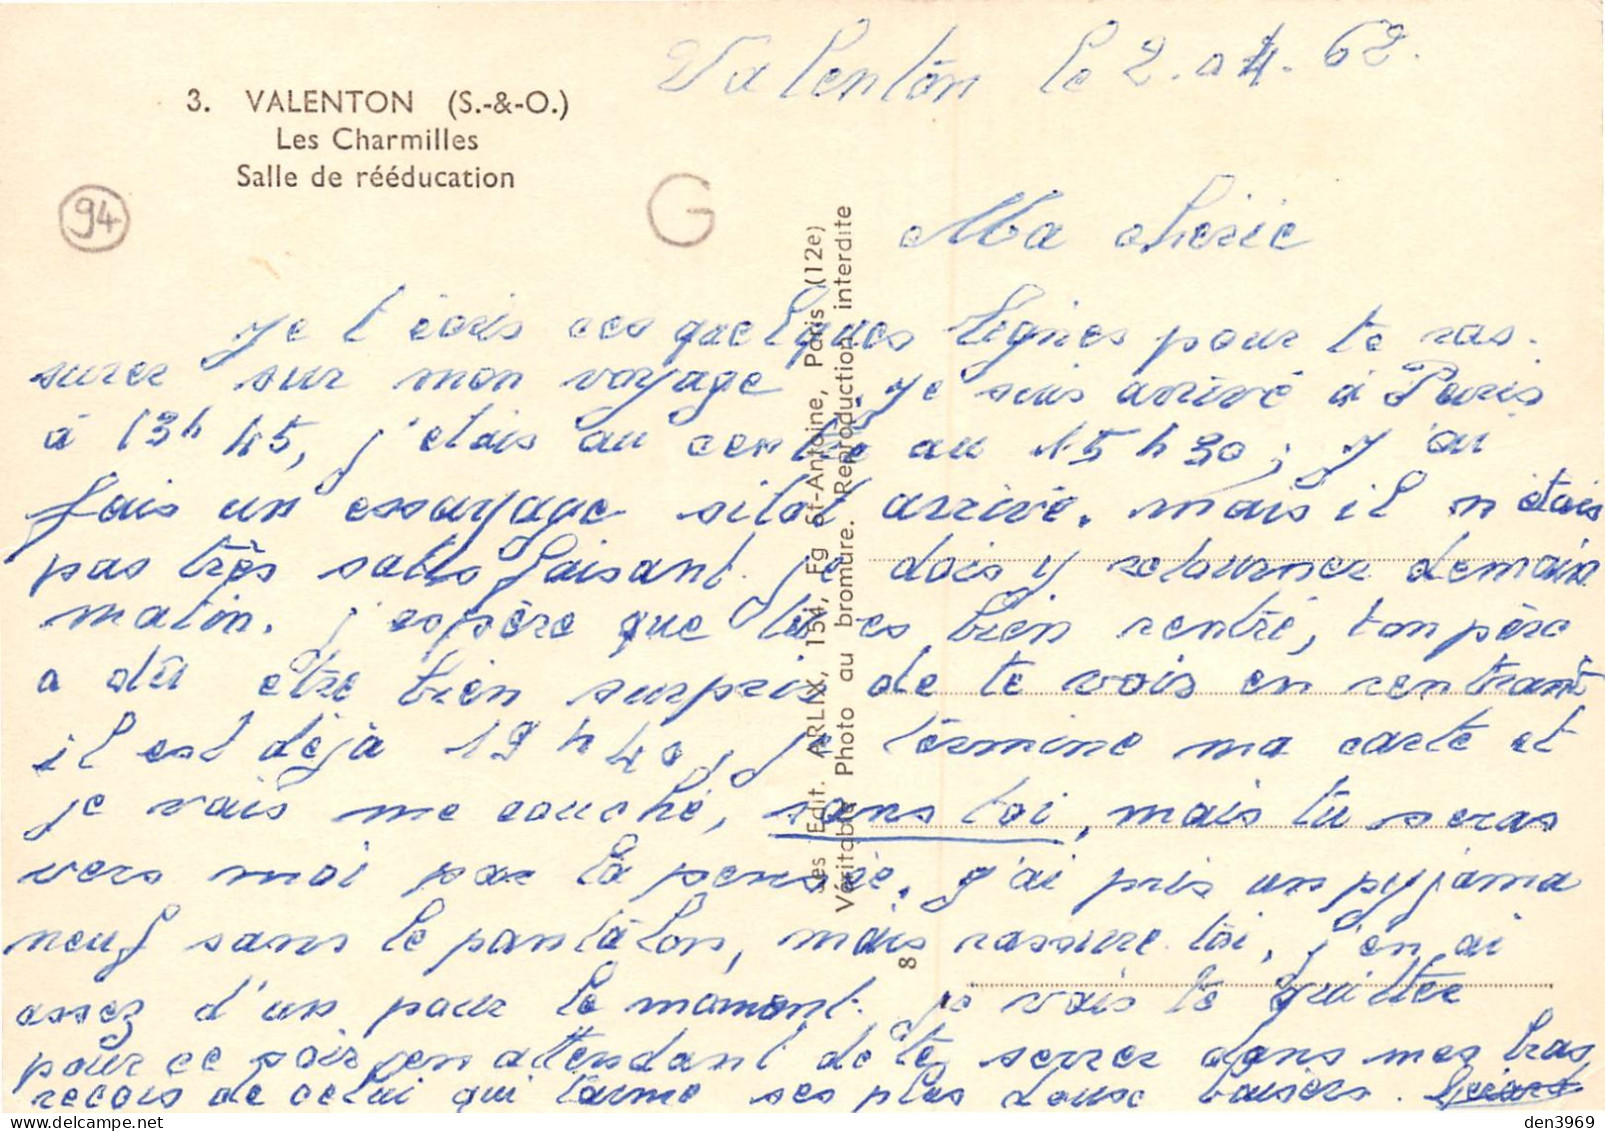 Valenton le 2.04.62.
3. VALENTON (S.-&-O.)
Les Charmilles
Salle de rééducation
94
G
Ma chérie
Je t'écris ces quelques lignes pour te ras-
surer sur mon voyage. Je suis arrivé à Paris
à 13h45, j'etais au centre au 15h30; J'ai
fais un essayage sitot arrivé. mais il n'étais
pas très satisfaisant. je dois y retourner demain
matin. j'espère que tu es bien rentré, ton père
a dû être bien surpris de te vois en rentrant
il est déjà 19h40, je termine ma carte et
je vais me couché, sans toi, mais tu seras
vers moi par la pensée. J'ai pris un pyjama
neuf sans le pantalon, mais rassure toi, j'en ai
assez d'un pour le moment. je vais te quitter
pour ce soir, en attendant de te serrer dans mes bras,
recois de celui qui t'aime ses plus doux baisers. Gérard
Les Edit. ARLIX, 154, Fg St-Antoine, Paris (12e)
Véritable Photo au bromure. Reproduction interdite
8
den3969